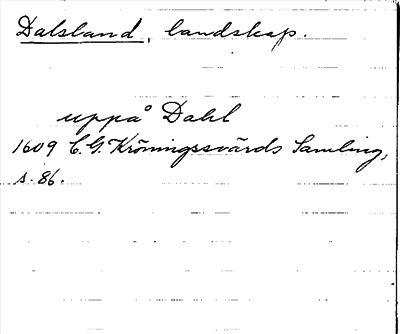 Dalsland, landskap.
uppå Dahl
1609 C.G. Kröningssvärds Samling,
s. 86.